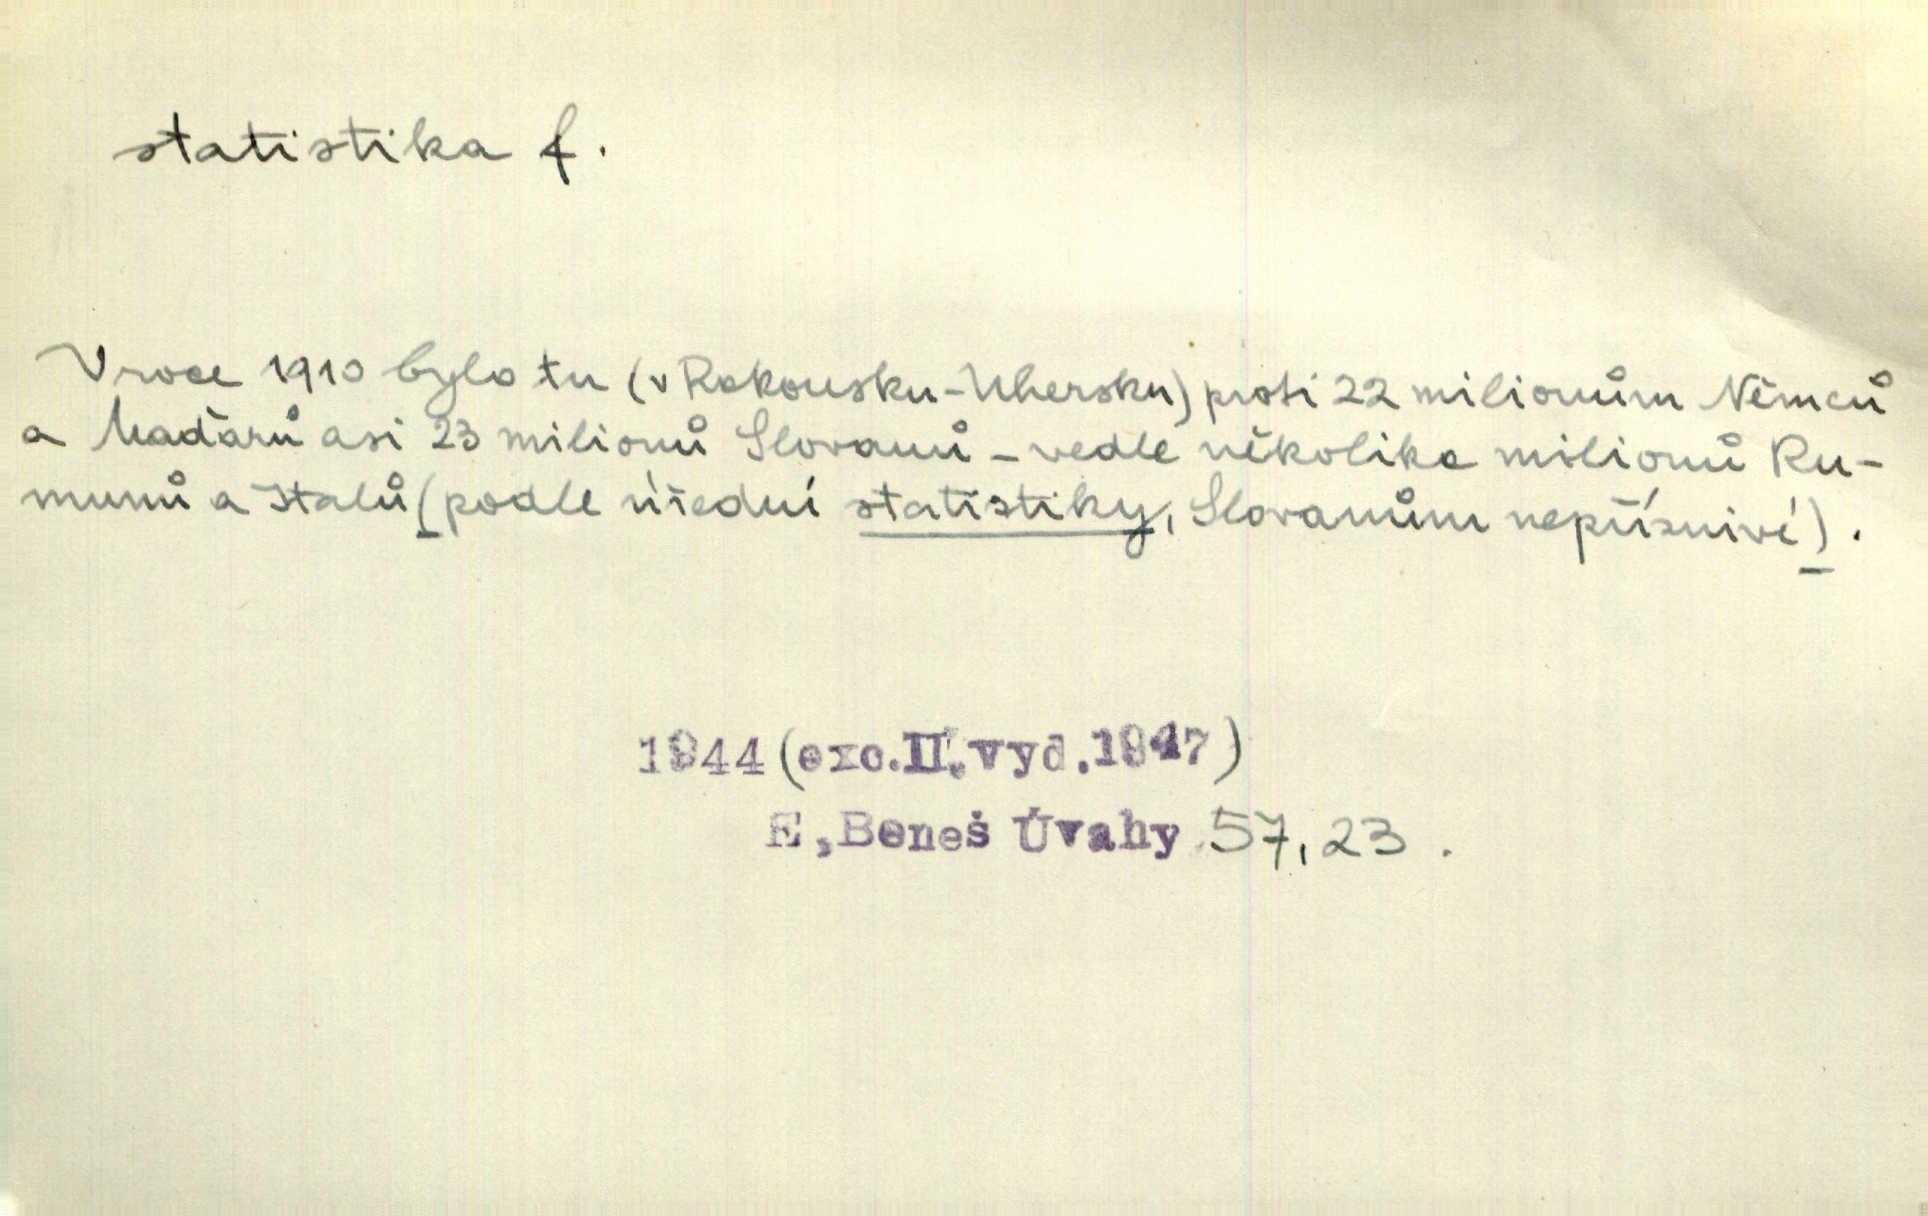 statistika f.
V roce 1910 bylo tu (v Rakousku-Uhersku) proti 22 milionům Němců
a Maďarů asi 23 milionů Slovanů – vedle několika milionů Ru-
munů a Italů (podle úřední statistiky, Slovanům nepříznivé).
1944 (exc.II.vyd.1947)
E,Beneš Úvahy 57,23.